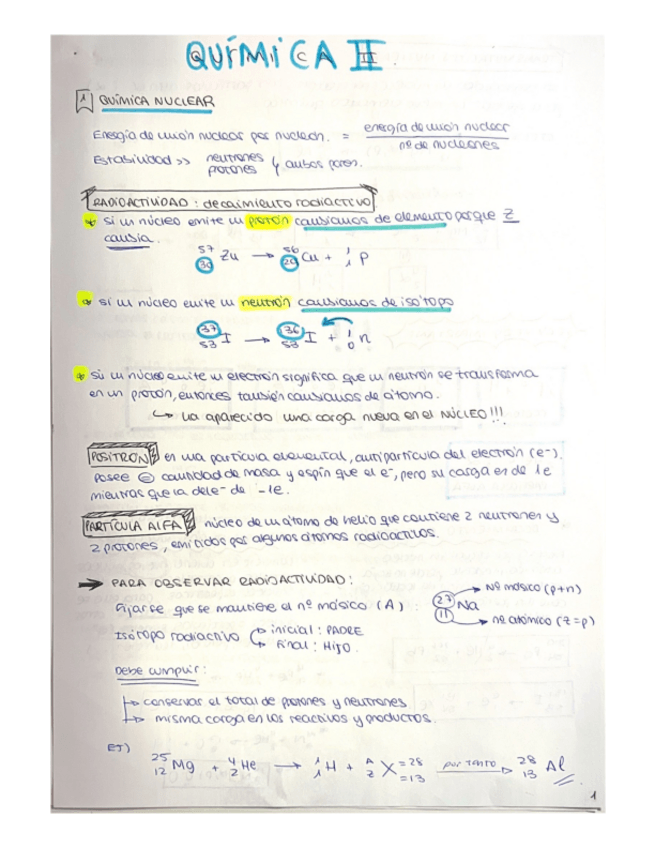 QUÍMICA II
1 QUÍMICA NUCLEAR
Energía de unión nuclear por nucleón. = energía de unión nuclear / nº de nucleones
Estabilidad >> neutrones protones y ambos pares.
RADIOACTIVIDAD: decaimiento radiactivo
* si un núcleo emite un protón cambiamos de elemento porque Z
cambia.
57 30 Zu → 56 29 Cu + 1 1 P
* si un núcleo emite un neutrón cambiamos de isótopo
37 53 I → 36 53 I + 1 0 n
* si un núcleo emite un electrón significa que un neutrón se transforma
en un protón, entonces también cambiamos de átomo.
↳ ha aparecido una carga nueva en el NÚCLEO!!!
POSITRON es una partícula elemental, antipartícula del electrón (e-).
Posee = cantidad de masa y espín que el e-, pero su carga es de 1e
mientras que la del e- de -1e.
PARTÍCULA ALFA núcleo de un átomo de helio que contiene 2 neutrones y
2 protones, emitidos por algunos átomos radioactivos.
→ PARA OBSERVAR RADIOACTIVIDAD:
Fijarse que se mantiene el nº másico (A): 27 11 Na → Nº másico (p+n) → nº atómico (Z=p)
Isótopo radiactivo → inicial: PADRE
→ Final: HIJO.
Debe cumplir:
→ conservar el total de protones y neutrones.
→ misma carga en los reactivos y productos.
EJ) 25 12 Mg + 4 2 He → 1 1 H + A Z X =28 =13 por tanto → 28 13 Al
1